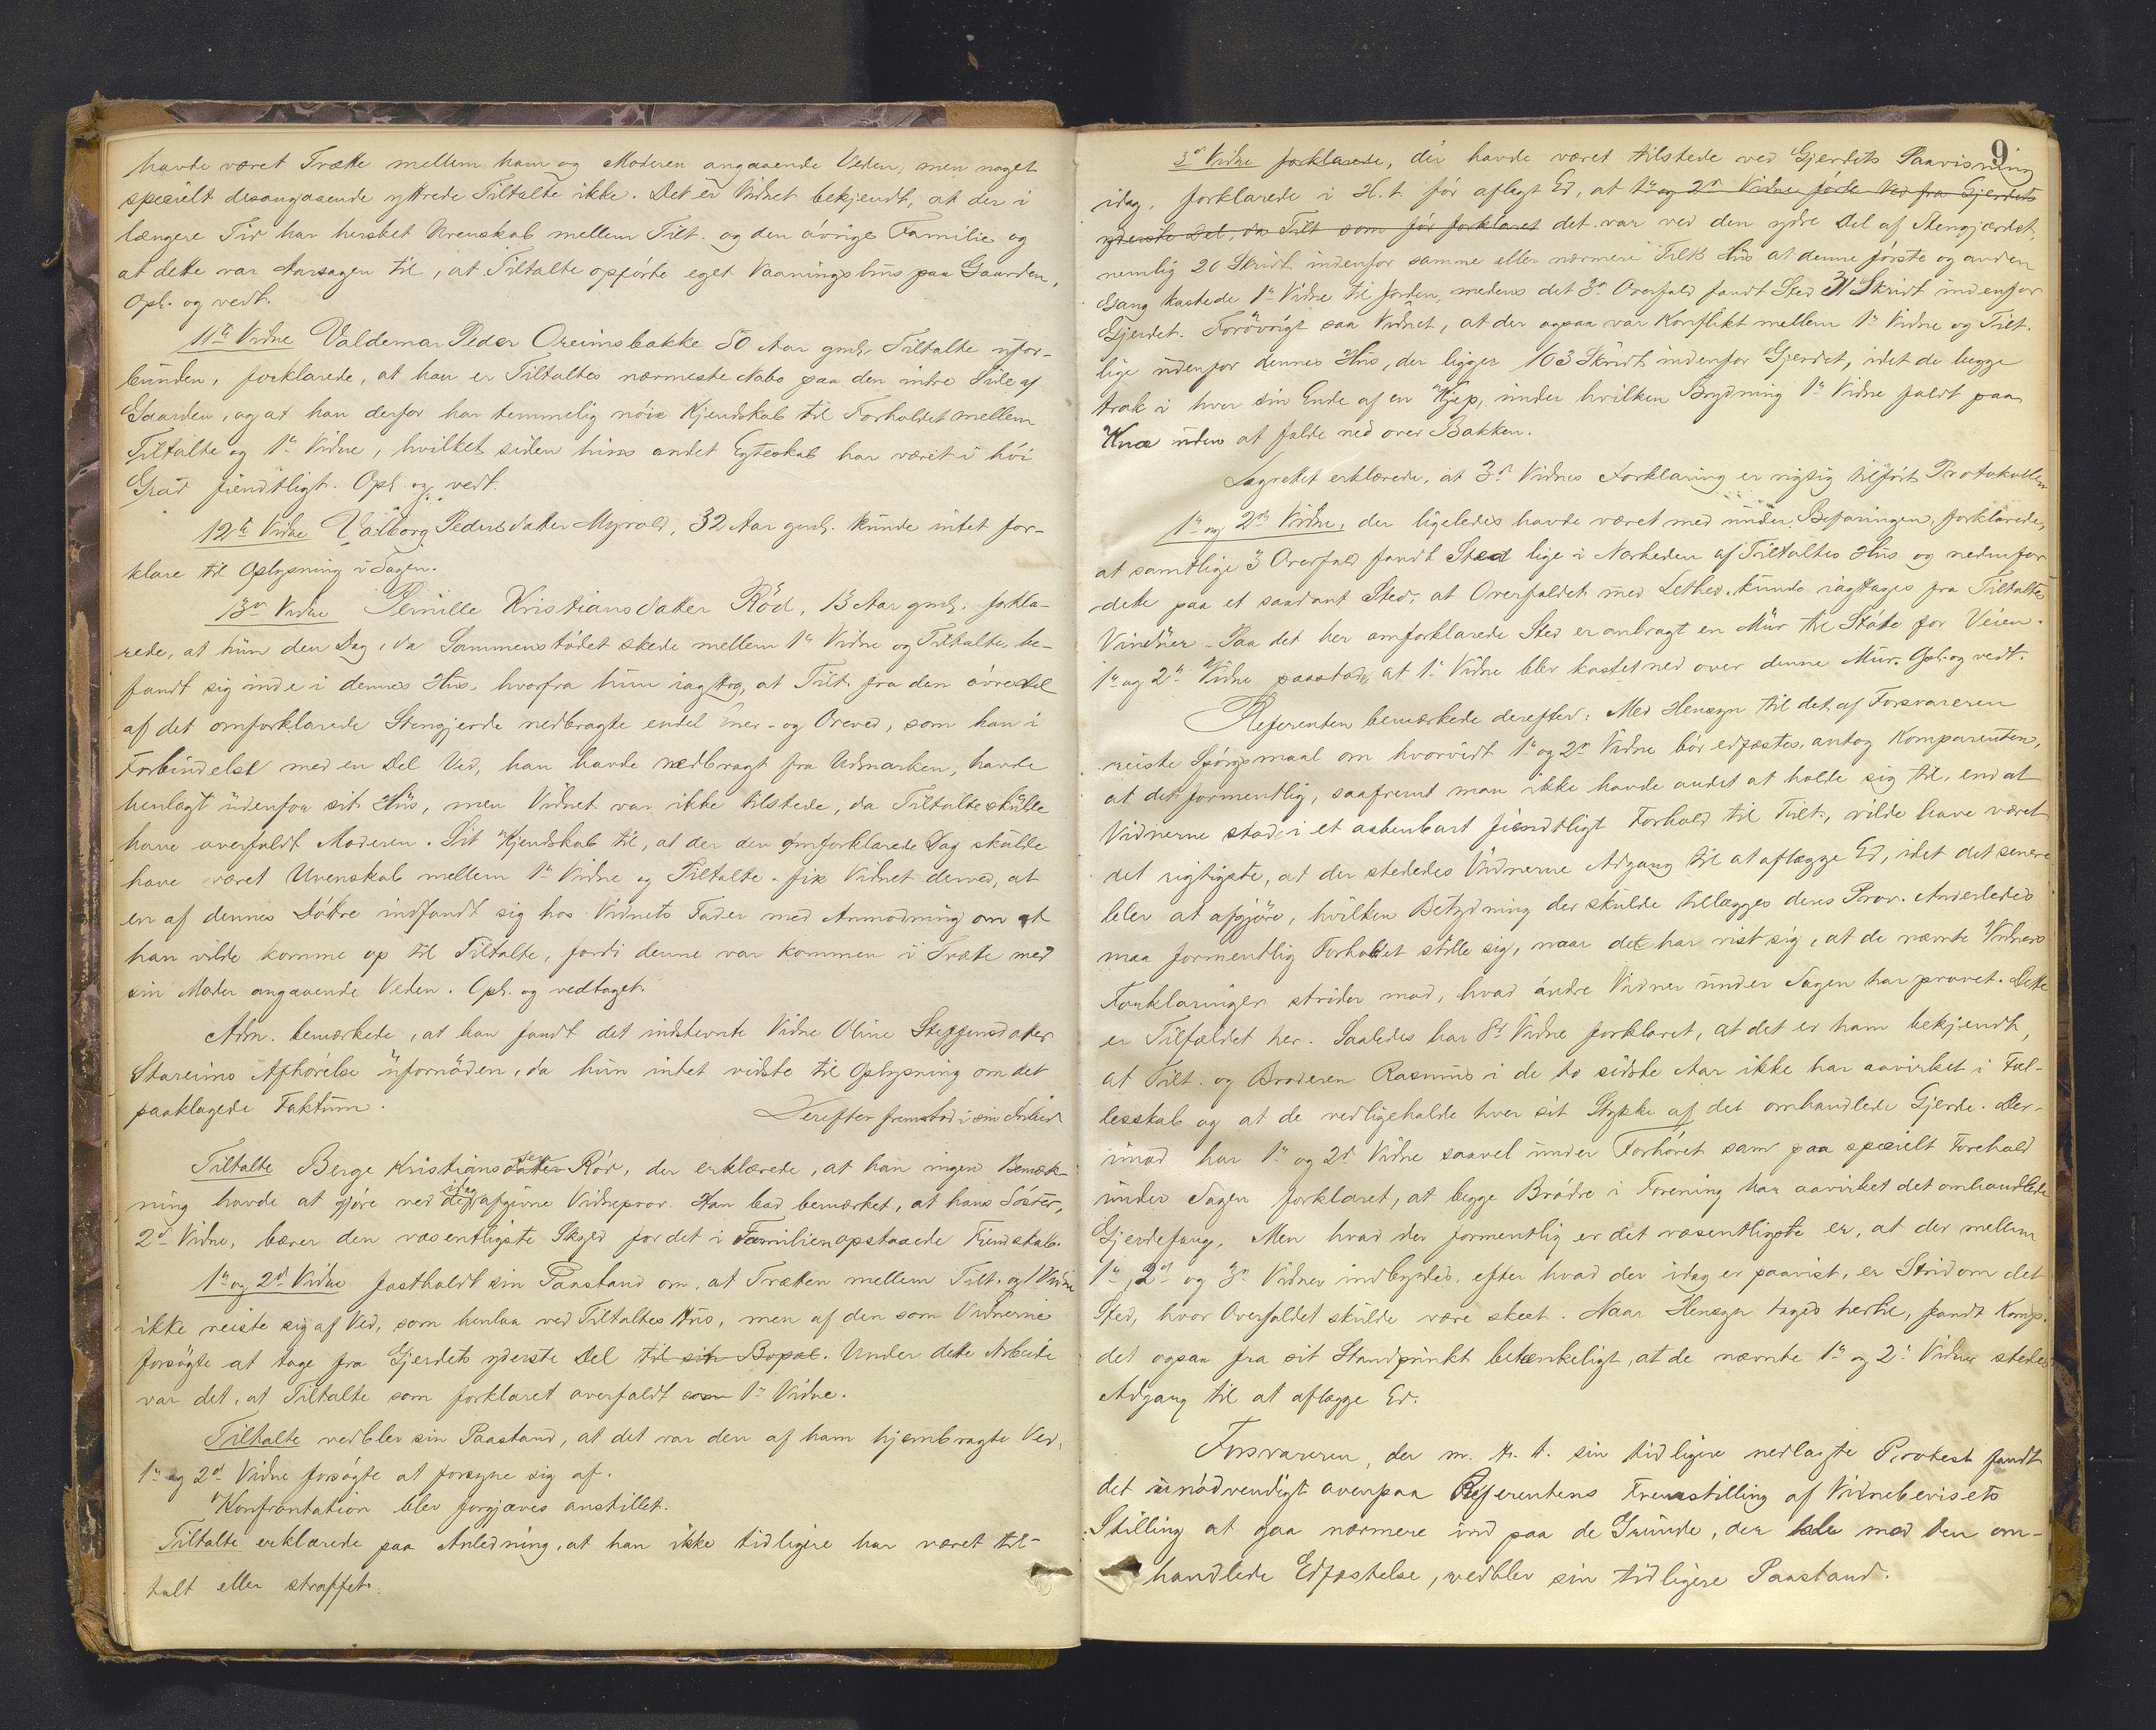 havde været Trætte mellem ham og Moderen angaaende Veden, men noget
specielt desangaaende yttrede Tiltalte ikke. Det er Vidnet bekjendt, at der i
længere Tid har hersket Uvenskab mellem Tilt. og den øvrige Familie og
at dette var Aarsagen til, at Tiltalte opførte eget Vaaningshus paa Gaarden,
Opl. og vedt.
11te Vidne Valdemar Peder Oreimsbakke 50 Aar gml. Tiltalte ufor-
bunden, forklarede, at han er Tiltaltes nærmeste Nabo paa den indre Side af
Gaarden, og at han derfor har temmelig nøie Kjendskab til Forholdet mellem
Tiltalte og 1ste Vidne, hvilket siden hins andet Egteskab har været i høi
Grad fiendtligt. Opl. og vedt.
12te Vidne Valborg Pedersdatter Myrold, 32 Aar gml. kunde intet for-
klare til Oplysning i Sagen.
13de Vidne Pernille Kristiansdatter Rød, 13 Aar gml. forkla-
rede, at hun den Dag, da Sammenstødet skede mellem 1ste Vidne og Tiltalte, be-
fandt sig inde i dennes Hus, hvorfra hun iagttog, at Tilt. fra den øvre Del
af det omforklarede Stengjerde nedbragte endel Ener- og Oreved, som han i
Forbindelse med en Del Ved, han havde nedbragt fra Udmarken, havde
henlagt udenfor sit Hus, men Vidnet var ikke tilstede, da Tiltalte skulle
have overfaldt Moderen. Sit Kjendskab til, at der den omforklarede Dag skulde
have været Uvenskab mellem 1ste Vidne og Tiltalte fik Vidnet derved, at
en af dennes Døtre indfandt sig hos Vidnets Fader med Anmodning om at
han vilde komme op til Tiltalte, fordi denne var kommen i Trætte med
sin Moder angaaende Veden. Opl. og vedtaget.
Adm. bemærkede, at han fandt det indstevnte Vidne Oline Steffensdatter
Stareims Afhørelse ufornøden, da hun intet vidste til Oplysning om det
paaklagede Faktum.
Derefter fremstod i sin Frihed
Tiltalte Berge Kristiansdattersen Rød, der erklærede, at han ingen Bemærk-
ning havde at gjøre ved de idag afgivne Vidneprov. Han bad bemærket, at hans Søster,
2det Vidne, bærer den væsentligste Skyld for det i Familien opstaaede Fiendskab.
1ste og 2det Vidne fastholdt sin Paastand om, at Trætten mellem Tilt. og 1 Vidne
ikke reiste sig af Ved, som henlaa ved Tiltaltes Hus, men af den som Vidnerne
forsøgte at tage fra Gjerdets yderste Del til sit Bopæl. Under dette Arbeide
var det, at Tiltalte som forklaret overfaldt som 1ste Vidne.
Tiltalte vedblev sin Paastand, at det var den af ham hjembragte Ved,
1ste og 2det Vidne forsøgte at forsyne sig af.
Konfrontation blev forgjæves anstillet.
Tiltalte erklærede paa Anledning, at han ikke tidligere har været til-
talt eller straffet.
9
3die Vidne forklarede, der havde været tilstede ved Gjerdets Paavisning
idag, forklarede i H.t. før aflagt Ed, at 1ste og 2det Vidne førte Ved fra Gjerdets
yderste Del, da Tilt som før forklaret det var ved den ydre Del af Stengjærdet,
nemlig 20 Skridt indenfor samme eller nærmere Tilts Hus at denne første og anden
Gang kastede 1ste Vidne til Jorden, medens det 3die Overfald fandt Sted 31 Skridt indenfor
Gjerdet. Forøvrigt saa Vidnet, at der ogsaa var Konflikt mellem 1ste Vidne og Tilt.
lige udenfor dennes Hus, der ligger 103 Skridt indenfor Gjerdet, idet de begge
trak i hver sin Ende af en Kjep, under hvilken Brydning 1ste Vidne faldt paa
Knæ uden at falde ned over Bakken.
Lagrettet erklærede, at 3die Vidnes Forklaring er rigtig tilført Protokollen
1ste og 2det Vidne, der ligeledes havde været med under Befaringen, forklarede,
at samtlige 3 Overfald fandt Sted lige i Nærheden af Tiltaltes Hus og nedenfor
dette paa et saadant Sted, at Overfaldet med Lethed kunde iagttages fra Tiltaltes
Vinduer. Paa det her omforklarede Sted er anbragt en Mur til Støtte for Veien.
1ste og 2det Vidne paastod, at 1ste Vidne blev kastet ned over denne Mur. Opl. og vedt.
Referenten bemærkede derefter: Med Hensyn til det af Forsvareren
reiste Spørgsmaal om hvorvidt 1ste og 2det Vidne bør edfæstes, antog Komparenten,
at det formentlig, saafremt man ikke havde andet at holde sig til, end at
Vidnerne stod i et aabenbart fiendtligt Forhold til Tilt., vilde have været
det rigtigste, at der stededes Vidnerne Adgang til at aflægge Ed, idet det senere
blev at afgjøre, hvilken Betydning der skulde tillægges deres Prov. Anderledes
maa formentlig Forholdet stille sig, naar det har vist sig, at de nævnte Vidners
Forklaringer strider mod, hvad andre Vidner under Sagen har provet. Dette
er Tilfældet her. Saaledes har 8de Vidne forklaret, at det er ham bekjendt,
at Tilt. og Broderen Rasmus i de to sidste Aar ikke har aavirket i Fæl-
lesskab og at de vedligeholde hver sit Stykke af det omhandlede Gjerde. Der-
imod har 1ste og 2det Vidne saavel under Forhøret som paa specielt Forehold
under Sagen forklaret, at begge Brødre i Forening har aavirket det omhandlede
Gjerdefang. Men hvad der formentlig er det væsentligste er, at der mellem
1ste, 2det og 3die Vidner indbyrdes, efter hvad der idag er paavist, er Strid om det
Sted, hvor Overfaldet skulde være skeet. Naar Hensyn tages hertil, fandt Komp.
det ogsaa fra sit Standpunkt betænkeligt, at de nævnte 1ste og 2det Vidner stedes
Adgang til at aflægge Ed.
Forsvareren, der m. H. t. sin tidligere nedlagte Protest fandt
det unødvendigt ovenpaa Referentens Fremstilling af Vidnebevisets
Stilling at gaa nærmere ind paa de Grunde, der tale mod den om-
handlede Edfæstelse, vedblev sin tidligere Paastand.